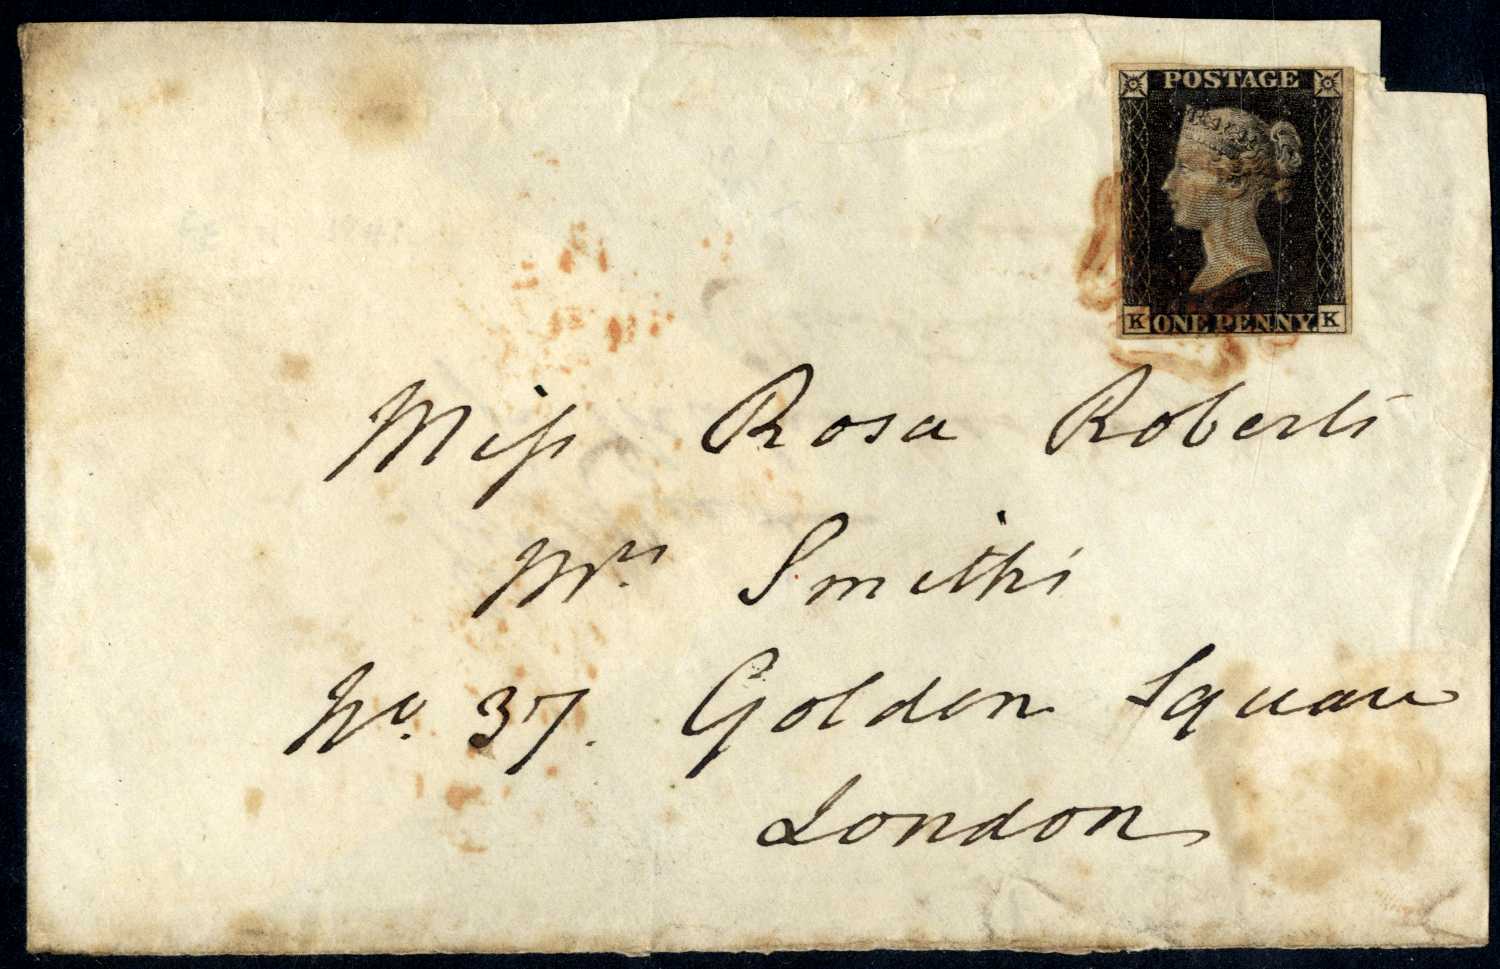 POSTAGE
K ONE PENNY K
Miſs Rosa Roberts
Mrs. Smith's
No. 37. Golden Square
London